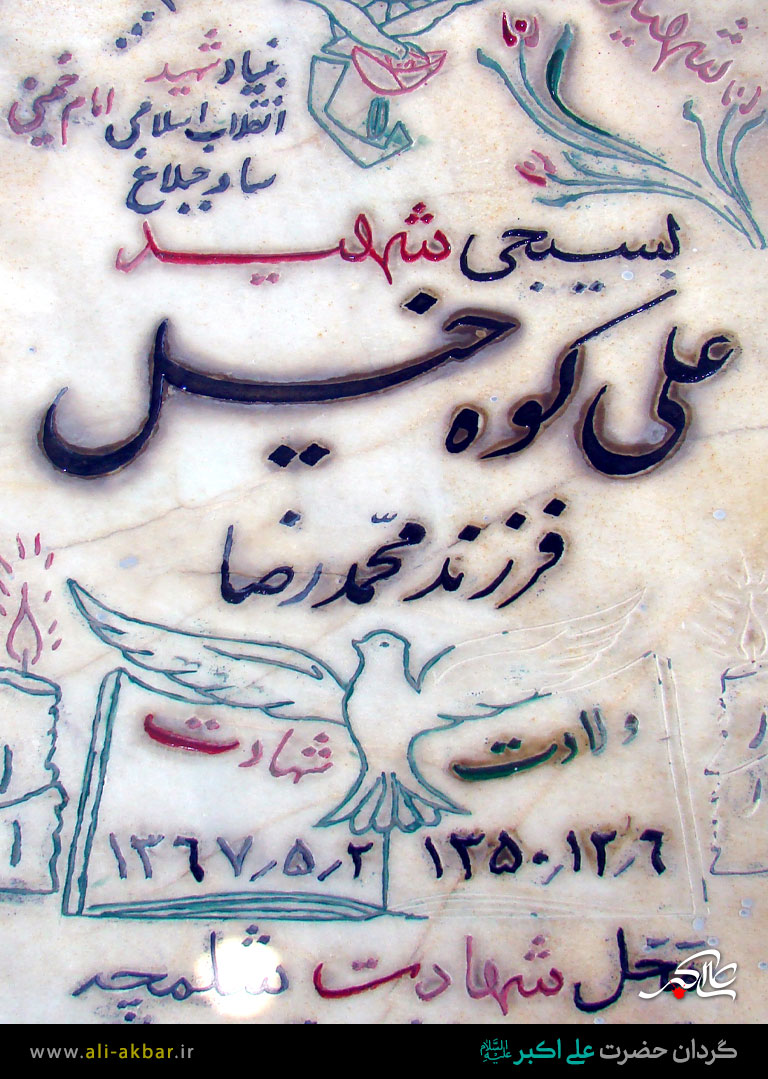 شهید
بنیاد شهید
انقلاب اسلامی امام خمینی
ساوجبلاغ
بسیجی شهید
علی کوه خیل
فرزند محمّد رضا
ولادت شهادت
۱۳۵۰٫۱۲٫۶ ۱۳۶۷٫۵٫۲
محل شهادت شلمچه
علی اکبر
گردان حضرت علی اکبر علیه السلام
www.ali-akbar.ir